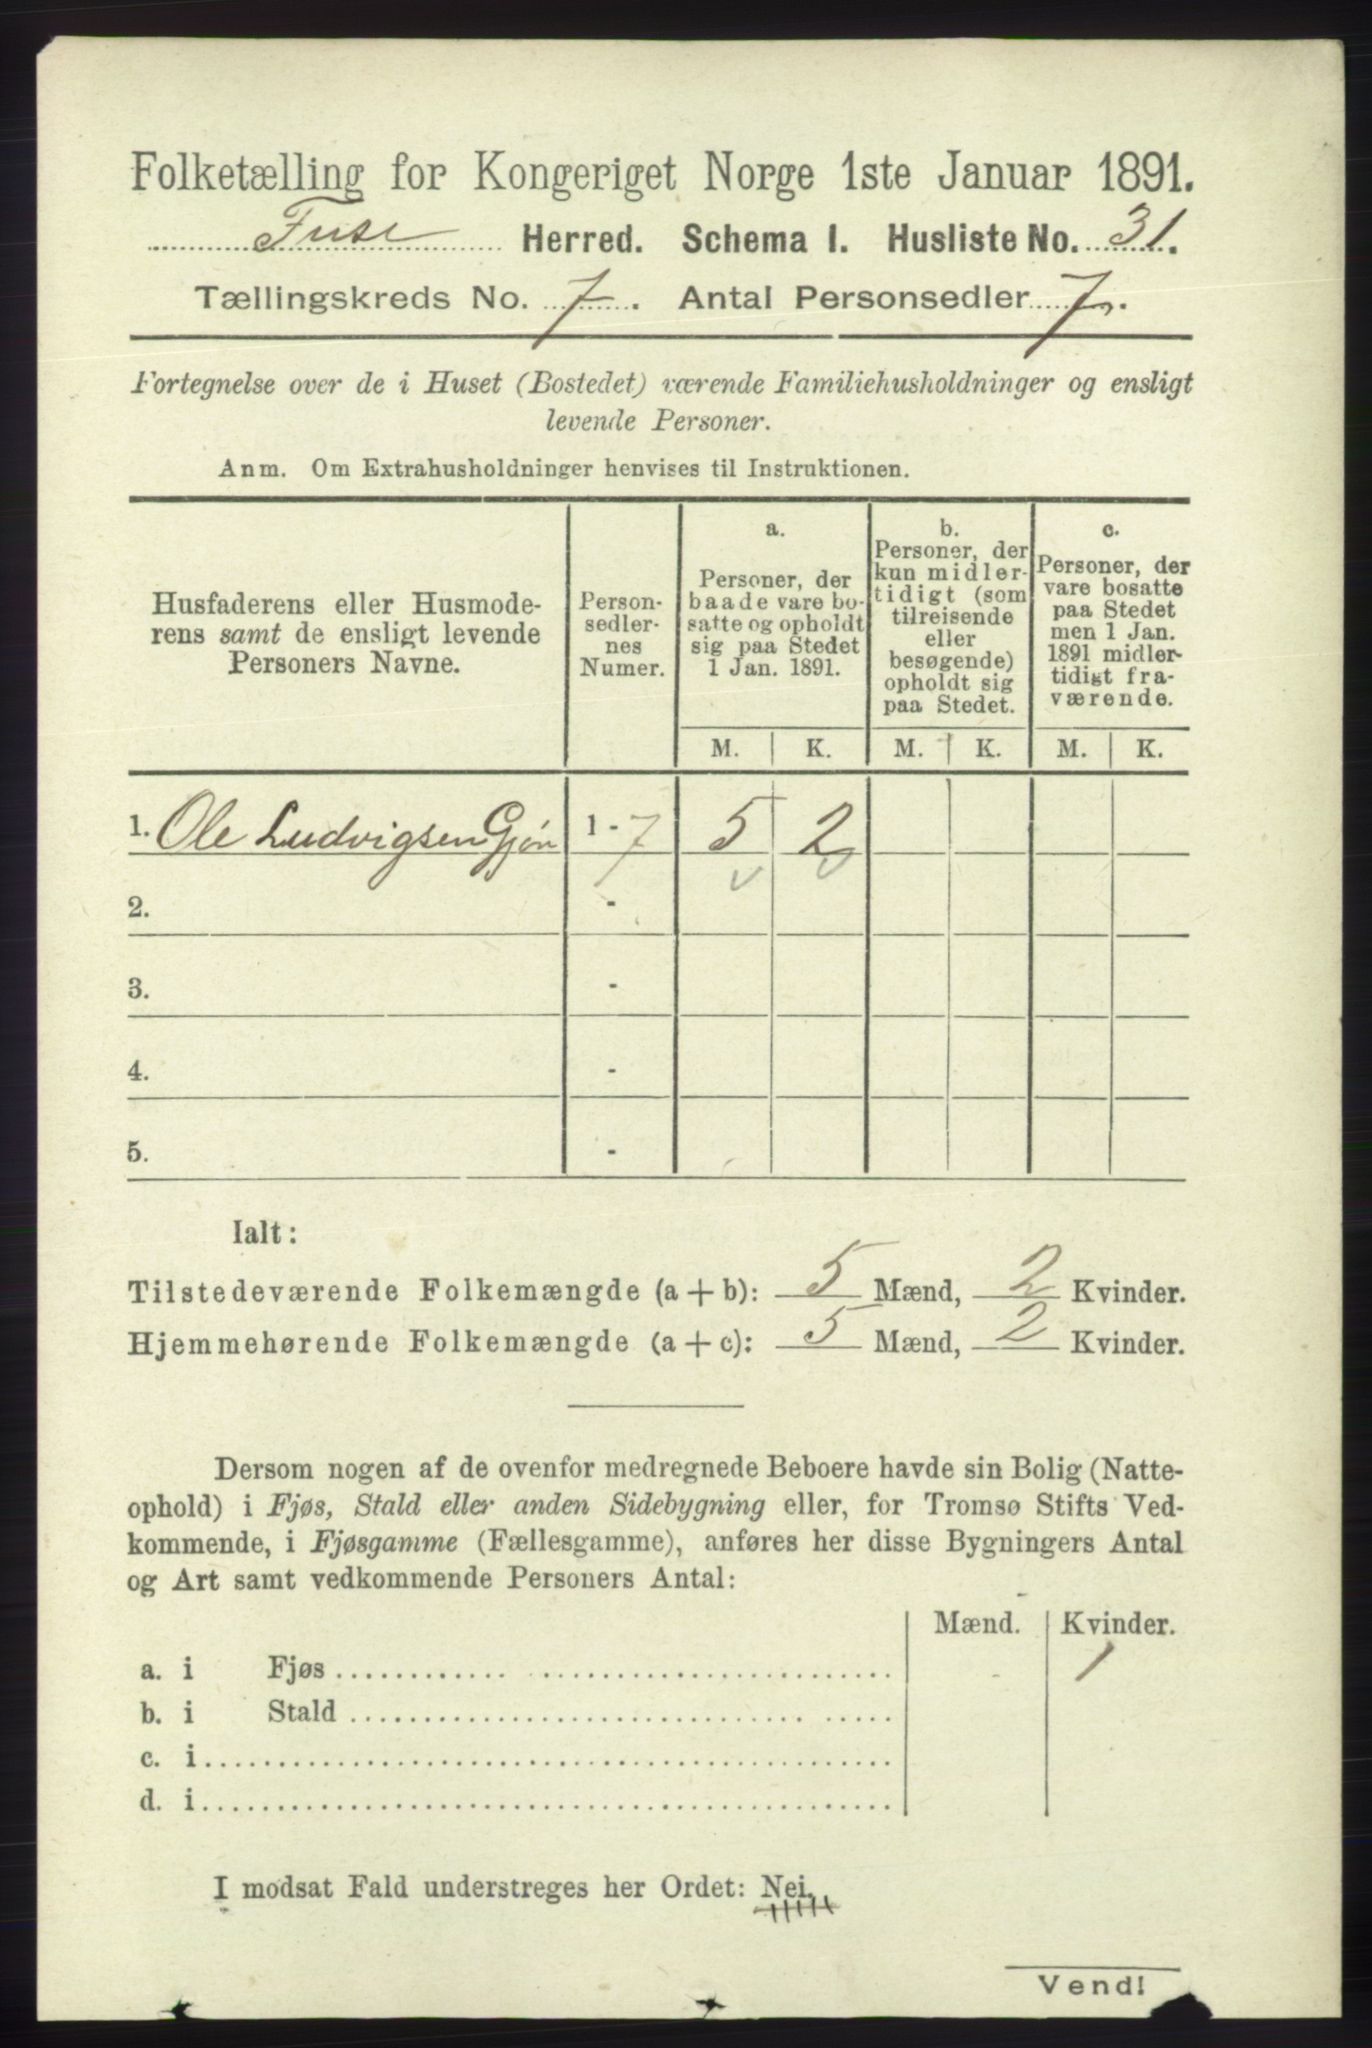 Folketælling for Kongeriget Norge 1ste Januar 1891.
Fuse Herred. Schema I. Husliste No. 31.
Tællingskreds No. 7. Antal Personsedler 7.
Fortegnelse over de i Huset (Bostedet) værende Familiehusholdninger og ensligt
levende Personer.
Anm. Om Extrahusholdninger henvises til Instruktionen.
Husfaderens eller Husmode-
rens samt de ensligt levende
Personers Navne.
Person-
sedler-
nes
Numer.
a.
Personer, der
baade vare bo-
satte og opholdt
sig paa Stedet
1 Jan. 1891.
b.
Personer, der
kun midler-
tidigt (som
tilreisende
eller
besøgende)
opholdt sig
paa Stedet.
c.
Personer, der
vare bosatte
paa Stedet
men 1 Jan.
1891 midler-
tidigt fra-
værende.
M. K. M. K. M. K.
1. Ole Ludvigsen Gjøn 1 - 7 5 2
2. -
3. -
4. -
5. -
Ialt:
Tilstedeværende Folkemængde (a + b): 5 Mænd, 2 Kvinder.
Hjemmehørende Folkemængde (a + c): 5 Mænd, 2 Kvinder.
Dersom nogen af de ovenfor medregnede Beboere havde sin Bolig (Natte-
ophold) i Fjøs, Stald eller anden Sidebygning eller, for Tromsø Stifts Ved-
kommende, i Fjøsgamme (Fællesgamme), anføres her disse Bygningers Antal
og Art samt vedkommende Personers Antal:
Mænd. Kvinder.
a. i Fjøs 1
b. i Stald
c. i
d. i
I modsat Fald understreges her Ordet: Nei.
Vend!